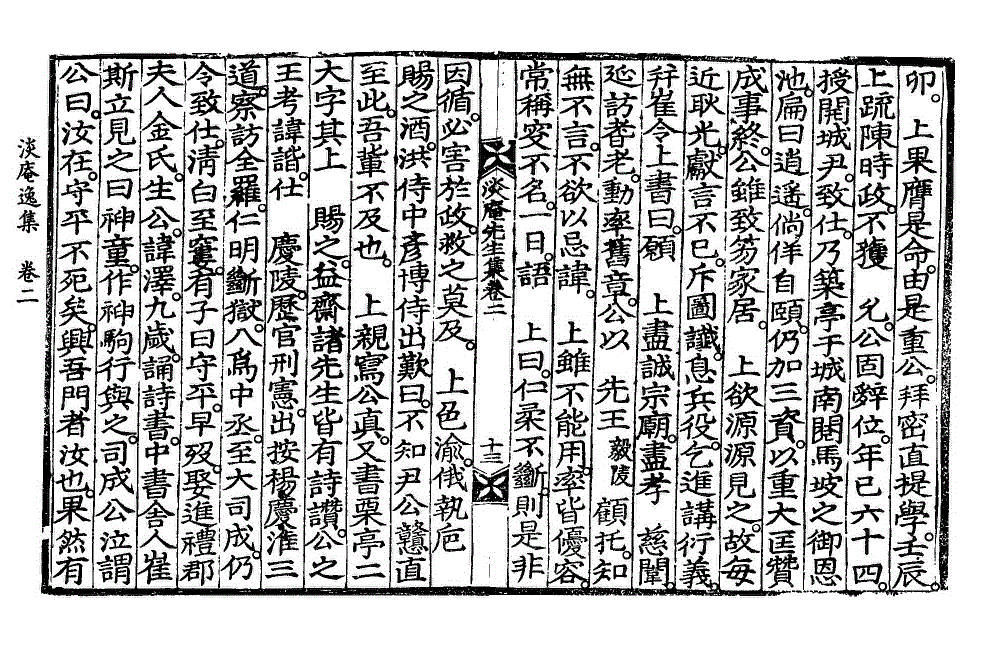 卯。 上果膺是命。由是重公。拜密直提學。壬辰。
上疏陳時政。不獲 允。公固辭位。年已六十四。
授開城尹。致仕。乃築亭于城南閱馬坡之御恩
池。扁曰逍遙。徜徉自頤。仍加三資。以重大匡贊
成事終。公雖致笏家居。 上欲源源見之。故每
近耿光。獻言不已。斥圖讖。息兵役。乞進講衍義。
幷崔令上書曰。願 上盡誠宗廟。盡孝 慈闈。
延訪耆老。動率舊章。公以 先王 毅陵 顧托。知
無不言。不欲以忌諱。 上雖不能用。率皆優容。
常稱安不名。一日。語 上曰。仁柔不斷。則是非
淡庵先生集卷二 十三
因循。必害於政。救之莫及。 上色渝。俄執巵
賜之酒。洪侍中彦博侍出歎曰。不知尹公戇直
至此。吾輩不及也。 上親寫公眞。又書栗亭二
大字其上 賜之。益齋諸先生皆有詩讚。公之
王考諱諧。仕 慶陵。歷官刑憲。出按楊慶淮三
道。察訪全羅。仁明斷獄。八爲中丞。至大司成。仍
令致仕。淸白至窶。有子曰守平。早歿。娶進禮郡
夫人金氏。生公。諱澤。九歲。誦詩書。中書舍人崔
斯立見之曰神童。作神駒行與之。司成公泣謂
公曰。汝在。守平不死矣。興吾門者汝也。果然有
淡庵逸集 卷二